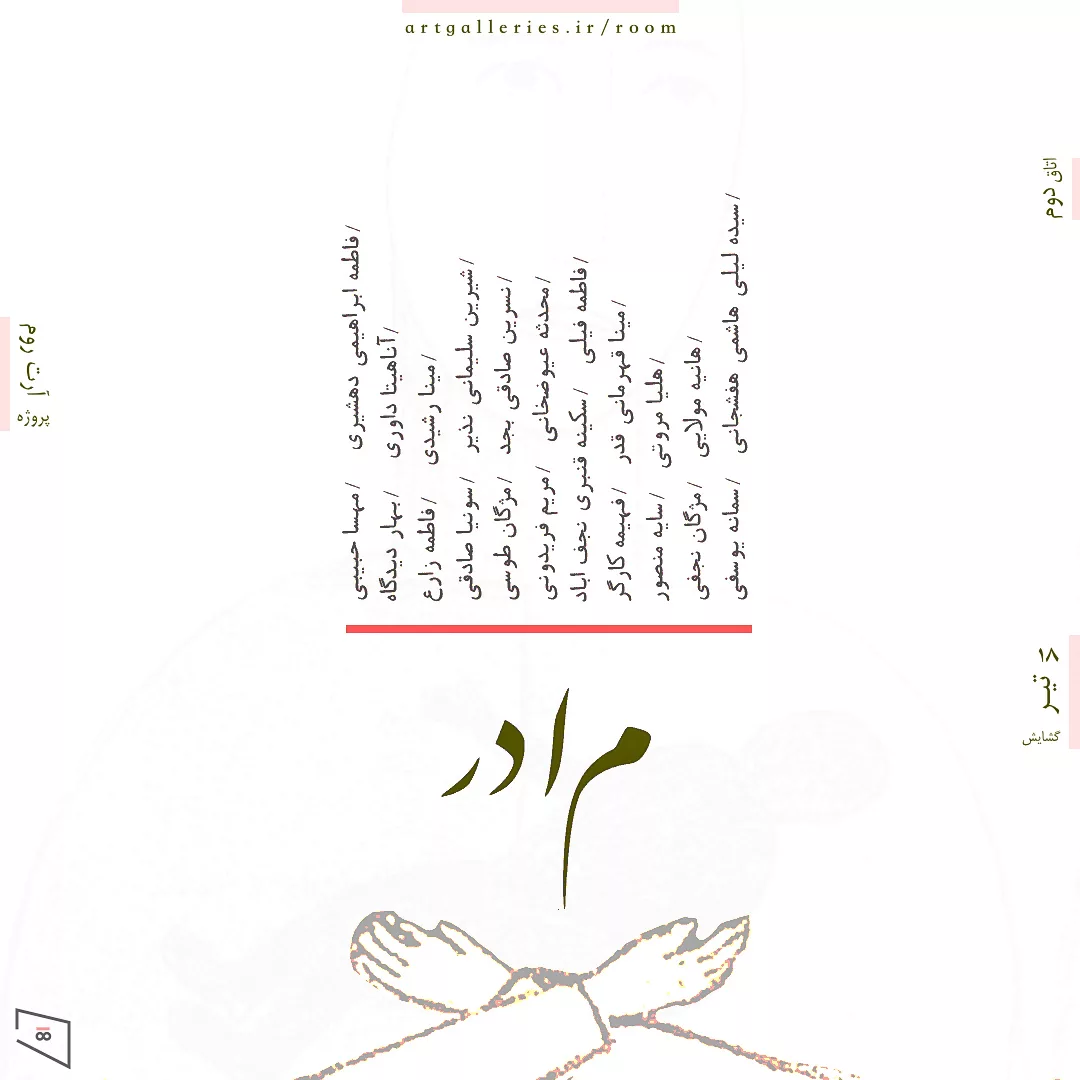 artgalleries.ir/room
اتاق دوم
/ فاطمه ابراهیمی دهشیری / مهسا حبیبی
/ آناهیتا داوری / بهار دیدگاه
/ مینا رشیدی / فاطمه زارع
/ شیرین سلیمانی نذیر / سونیا صادقی
/ نسرین صادقی بجد / مژگان طوسی
/ محدثه عیوضخانی / مریم فریدونی
/ فاطمه فیلی / سکینه قنبری نجف اباد
/ مینا قهرمانی قدر / فهیمه کارگر
/ هلیا مروتی / سایه منصور
/ هانیه مولایی / مژگان نجفی
/ سیده لیلی هاشمی هفشجانی / سمانه یوسفی
پروژه اَرت روم
گشایش
۱۸ تیر
م ادر